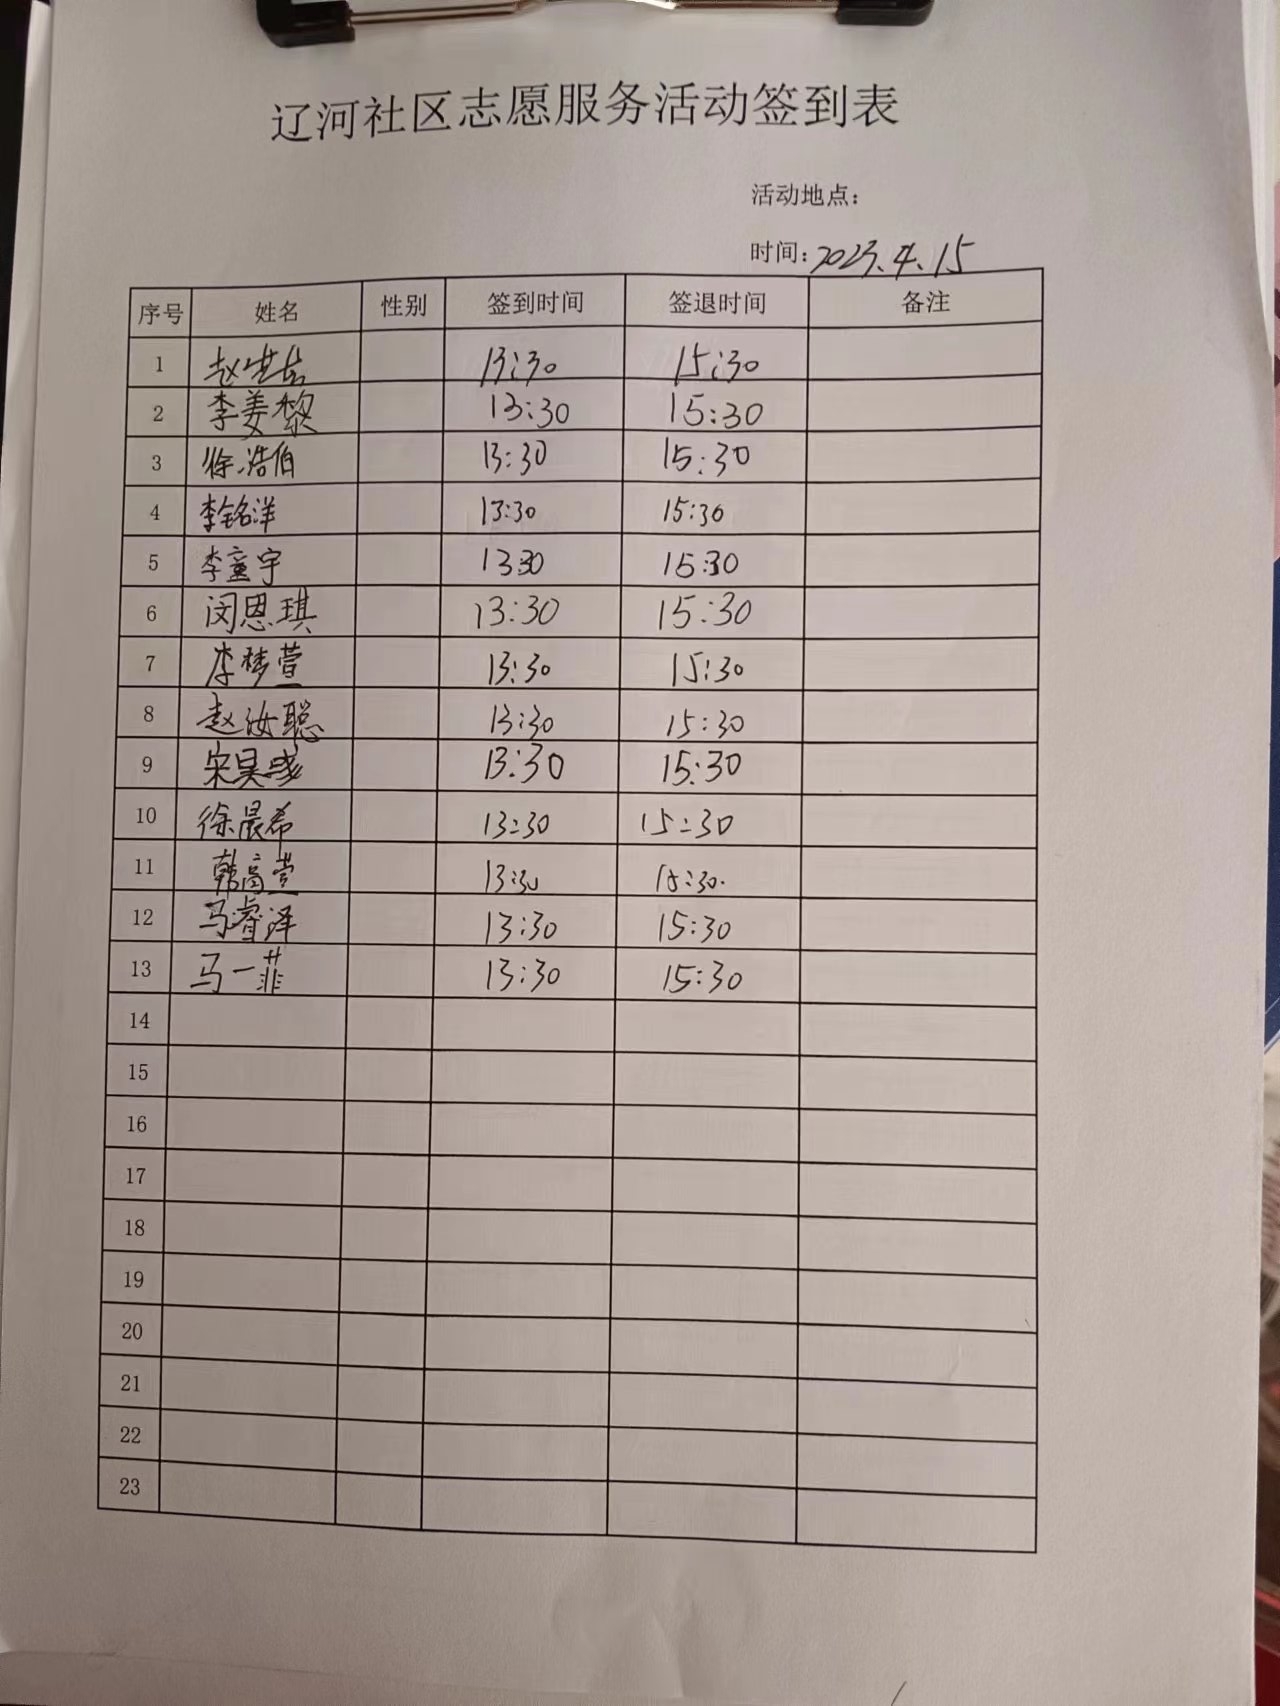 辽河社区志愿服务活动签到表
活动地点：
时间：2023.4.15
序号 姓名 性别 签到时间 签退时间 备注
1 赵 13:30 15:30
2 李姜黎 13:30 15:30
3 徐浩伯 13:30 15:30
4 李铭洋 13:30 15:30
5 李童宇 13:30 15:30
6 闵恩琪 13:30 15:30
7 李梦萱 13:30 15:30
8 赵汝聪 13:30 15:30
9 宋昊彧 13:30 15:30
10 徐晨希 13:30 15:30
11 韩高萱 13:30 15:30.
12 马睿泽 13:30 15:30
13 马一菲 13:30 15:30
14
15
16
17
18
19
20
21
22
23